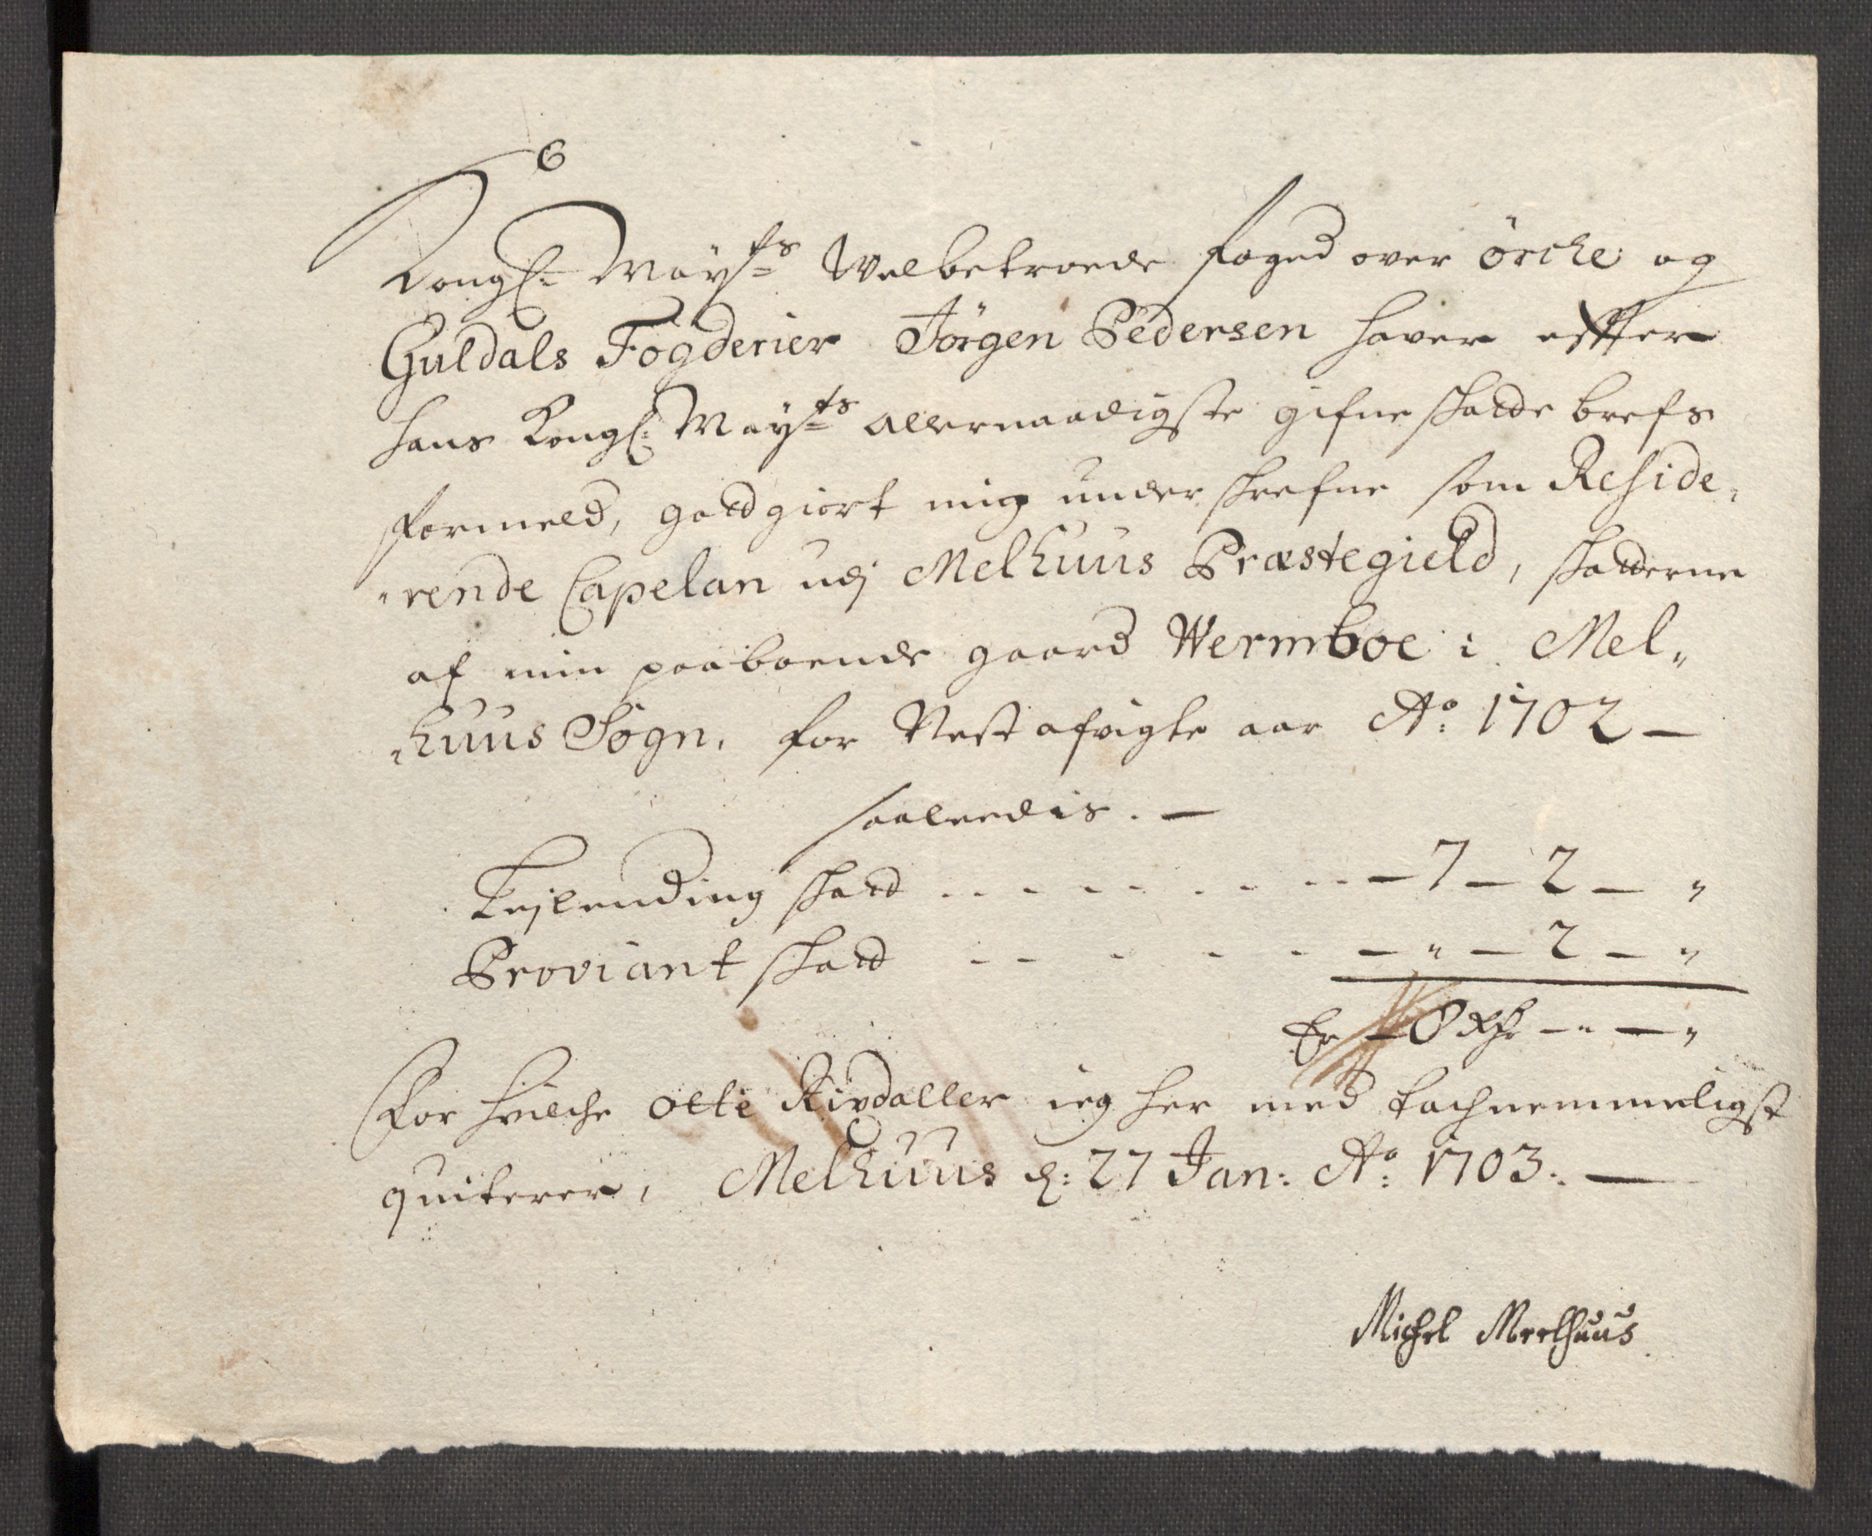 Kongl: May:ts Velbetroede foged over Örche og
Guldals Fogderier Jörgen Pedersen hafuer effter
hans Kongl: May:ts allernaadigste gifne skatte brefs
formeld, gottgiort mig underskrefne som Reside,
,rende Capelan udj Melhuus Præstegield, skatterne
af min paaboende gaard Wermboe i Mel,,
,huus Sogn, for Nest afvigte aar Ao: 1702 —
saaleedis. —
Lejlending skatt - - - - - - - — 7 — 2 — „
Proviant skatt - - - - - — „ — 2 — „
Er — 8 Rdr — „ — „
For hvilche otte Rixdaller ieg her med tachnemmeligst
quiterer, Melhuus d: 27 Jan: Ao: 1703. —
Michel Meelhuus